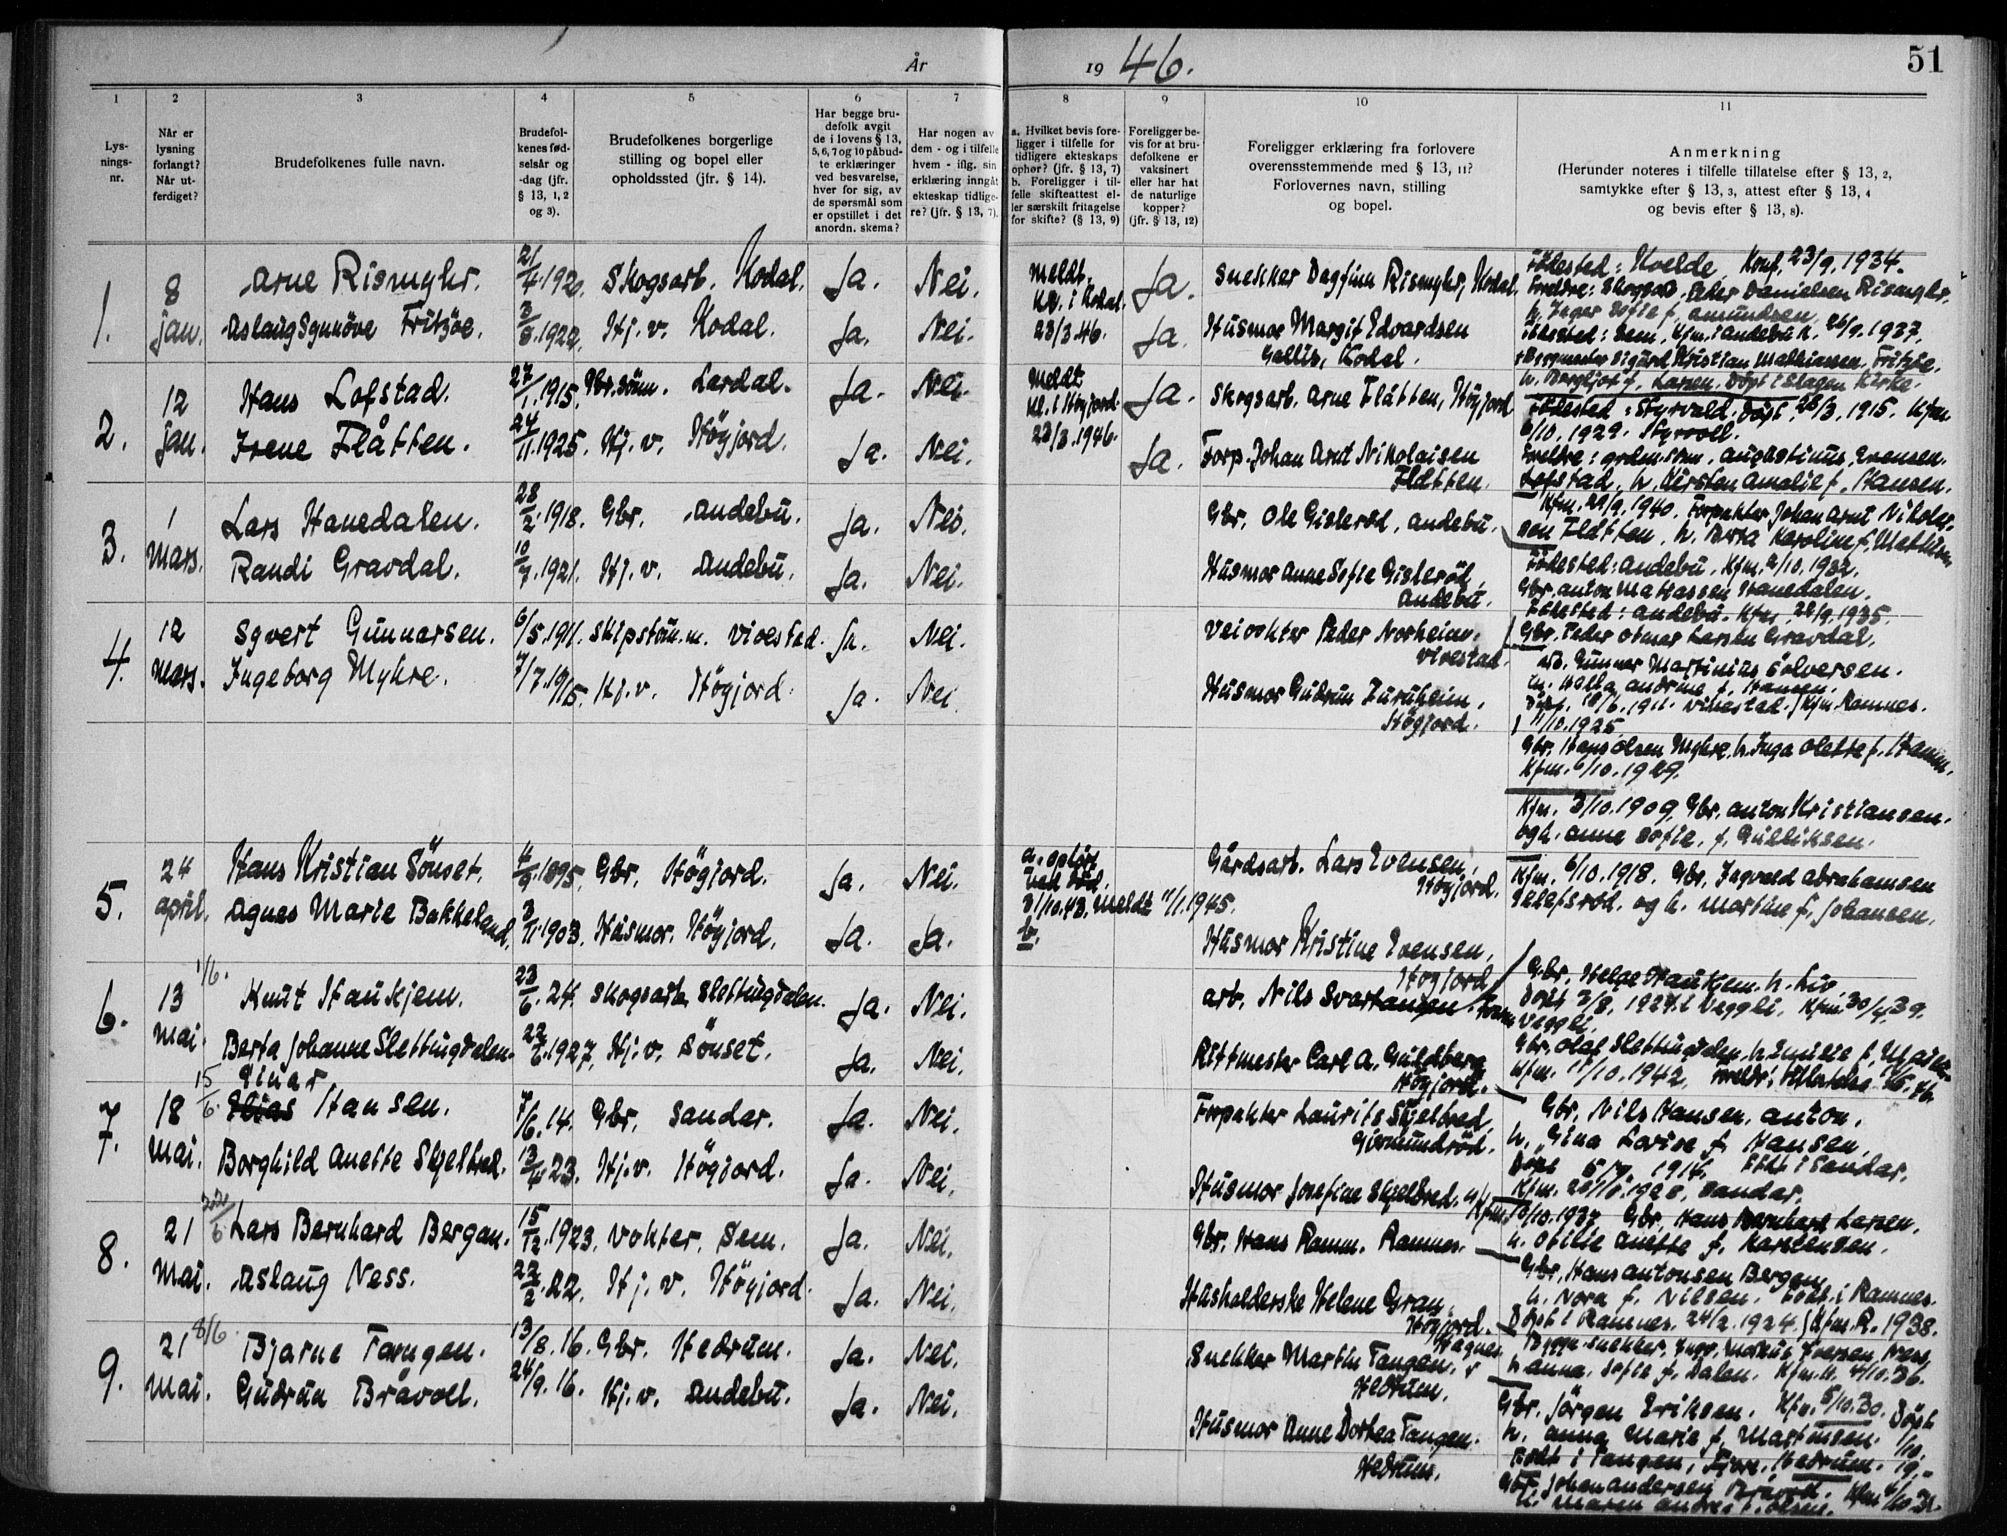 År 1946.
51
1
2
3
4
5
6
7
8
9
10
11
Lys-
nings-
nr.
Når er
lysning
forlangt?
Når ut-
ferdiget?
Brudefolkenes fulle navn.
Brudefol-
kenes fød-
selsår og
-dag (jfr.
§ 13, 1, 2
og 3).
Brudefolkenes borgerlige
stilling og bopel eller
opholdssted (jfr. § 14).
Har begge bru-
defolk avgit
de i lovens § 13,
5, 6, 7 og 10 påbud-
te erklæringer
ved besvarelse,
hver for sig, av
de spørsmål som
er opstillet i det
anordn. skema?
Har nogen av
dem - og i tilfelle
hvem - iflg. sin
erklæring inngåt
ekteskap tidlige-
re? (jfr. § 13, 7).
a. Hvilket bevis fore-
ligger i tilfelle for
tidligere ekteskaps
ophør? (jfr. § 13, 7)
b. Foreligger i til-
felle skifteattest el-
ler særskilt fritagelse
for skifte? (§ 13, 9)
Foreligger be-
vis for at bru-
defolkene er
vaksinert
eller har hat
de naturlige
kopper?
(jfr. § 13, 12)
Foreligger erklæring fra forlovere
overensstemmende med § 13, 11?
Forlovernes navn, stilling
og bopel.
Anmerkning
(Herunder noteres i tilfelle tillatelse efter § 13, 2,
samtykke efter § 13, 3, attest efter § 13, 4
og bevis efter § 13, 8).
1.
8
jan.
Arne Rismyhr. 21/4.1920. Skogsarb. Kodal. Ja. Nei.
Aslaug Synnöve Fritzöe. 3/8.1922. Hj. v. Kodal. Ja. Nei.
Meldt.
kl. i Kodal.
23/3.46.
Ja.
Ja.
Snekker Dagfinn Rismyhr, Kodal.
Husmor Margit Edvardsen
Gallis, Kodal.
Födested: Kvelde. Konf. 23/9.1934.
Foreldre: Skogsarb. Peder Danielsen Rismyhr,
h. Inger Sofie f. Amundsen.
Födested: Sem. Kfm. i Andebu k. 26/9.1937.
Byggmester Sigurd Kristian Mathiassen Fritzöe.
h. Borghjot f. Larsen. Döpt i Slagen Kirke.
2.
12
jan.
Hans Lofstad. 27/1.1915. Gbr.sönn. Lardal. Ja. Nei.
Irene Flåtten. 24/11.1925. Hj. v. Högjord. Ja. Nei.
Meldt
kl. i Högjord
23/3.1946.
Ja.
Ja.
Skogsarb. Arne Flåtten, Höyjord
Forp. Johan Arnt Nikolaisen
Flåtten.
Födested: Styrvold. Döpt 28/3.1915. Kfm.
6/10.1929. Styrvoll.
Foreldre: grdm.sönn. Augustinus Evensen.
Lofstad, h. Kirsten Amalie f. Hansen.
Kfm. 29/9.1940. Forpakter Johan Arnt Nikolai-
sen Flåtten, h. Berta Karoline f. Mathisen
3.
1
mars.
Lars Hanedalen. 28/2.1918. Gbr. Andebu. Ja. Nei.
Randi Gravdal. 10/7.1921. Hj. v. Andebu. Ja. Nei.
Gbr. Ole Gisleröd, Andebu.
Husmor Anne Sofie Gisleröd,
Andebu.
Födested: Andebu. Kfm. 2/10.1932.
Gbr. Anton Mathiassen Hanedalen.
Födested: Andebu. Kfm. 22/9.1935.
Gbr. Peder Otmar Larsen Gravdal.
4.
12
mars.
Syvert Gunnarsen. 6/5.1911. Skipstöm.m. Vivestad. Ja. Nei.
Ingeborg Myhre. 7/7.1915. Hj. v. Högjord. Ja. Nei.
Veivokter Peder Norheim.
Vivestad.
Husmor Gudrun Furuheim,
Högjord.
Arb. Gunnar Martinius Sölversen.
m. Halla Andrine f. Hansen.
Döpt. 18/6.1911. Vivestad. Kfm. Ramnes.
11/10.1925.
Gbr. Hans Olsen Myhre. h. Inga Olette f. Hansen.
Kfm. 6/10.1929.
5.
24
april.
Hans Kristian Sönset. 4/9.1895. Gbr. Högjord. Ja. Nei.
Agnes Marie Bakkeland. 3/11.1903. Husmor. Högjord. Ja. Ja.
a. oplöst
ved död.
31/10.43. Meldt 11/1.1945.
b.
Gårdsarb. Lars Evensen,
Högjord.
Husmor Kristine Evensen,
Högjord
Kfm. 3/10.1909. Gbr. Anton Kristiansen.
og h. Anne Sofie f. Gulliksen.
Kfm. 6/10.1918. Gbr. Ingvald Abrahamsen
og h. Martine f. Johansen.
6.
1/6.
13
mai.
Knut Haukjem. 23/6.24. Skogsarb. Slettingdalen. Ja. Nei.
Berta Johanne Slettingdalen. 22/6.1927. Hj. v. Sönset. Ja. Nei.
Arb. Nils Svartangen.
Rittmester Carl A. Guldberg
Högjord.
Gbr. Helge Haukjem. h. Liv
Döpt 3/8.1924 i Veggli. Kfm. 30/4.39.
Veggli.
Gbr. Olaf Slettingdalen, h. Emilie f.
Kfm. 11/10.1942. Foreldr. tillatelse
7.
15/6.
18
mai.
Einar
Hansen. 7/6.14. Gbr. Sandar. Ja. Nei.
Borghild Anette Skjelbred. 13/4.23. Hj. v. Högjord. Ja. Nei.
Forpakter Laurits Skjelbred,
Gjermundröd.
Husmor Josefine Skjelbred.
Gbr. Nils Hansen, Anton,
h. Gina Lovise f. Hansen.
Döpt 5/7.1914. Födt i Sandar.
Kfm. 1928. Sandar.
Kfm. 10/10.1937. Gbr. Hans Bernhard Larsen.
h. Otilie Anette f. Karstensen.
8.
22/6
21
mai.
Lars Bernhard Bergan. 15/12.1923. Vokter. Sem. Ja. Nei.
Aslaug Ness. 22/2.22. Hj. v. Högjord. Ja. Nei.
Gbr. Hans Ramm. Ramnes.
Husholderske Helene Gran,
Högjord.
Gbr. Hans Antonsen Bergan
h. Nora f. Nilsen. Födt i Ramnes.
Döpt i Ramnes. 24/2.1924. Kfm. R. 1938.
Byggn.snekker, Ingv. Markus Iversen Ness,
h. Anna Sofie f. Dalen. Kfm. h. 4/10.36.
9.
8/6.
21
mai.
Bjarne Tangen. 13/8.16. Gbr. Hedrum. Ja. Nei.
Gudrun Bråvoll. 24/9.16. Hj. v. Andebu. Ja. Nei.
Snekker Martin Tangen.
Hedrum.
Husmor Anne Dortea Tangen.
Hedrum.
Gbr. Jörgen Eriksen. Kfm. 5/10.30. Döpt
h. Anna Marie f. Martinsen. 1/10.
Födt i Tangen, Hedrum.
Gbr. Johan Andersen Kfm.
h. Maren Andrea f. Olsen.